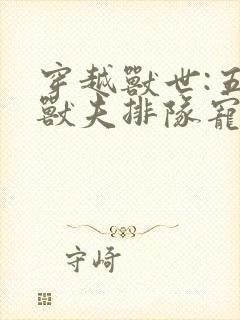 穿越獸世:五
獸夫排隊寵
守崎